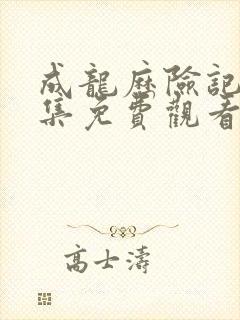 成龍歷險記
集免費觀看
高士濤